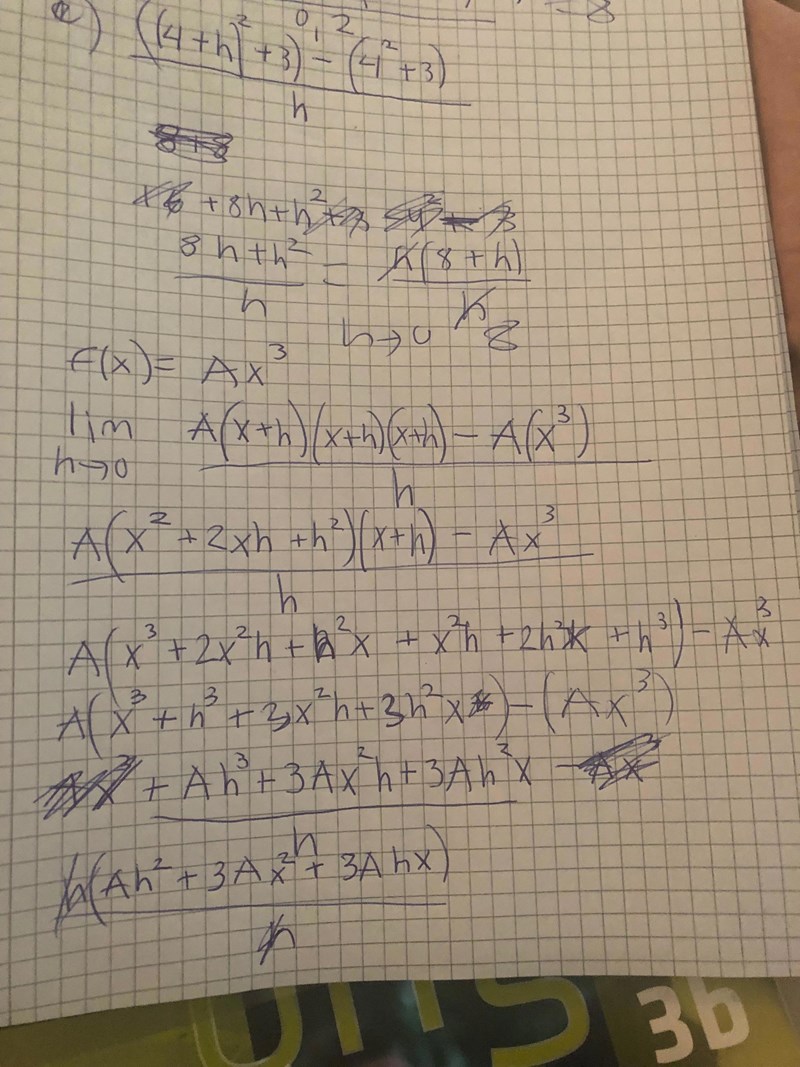 = 8
0,2
((4+h)² + 3) - (4² + 3)
h
8+8
16 + 8h + h² + 3 - 4² - 3
8h + h² = h(8 + h)
h h
h→0 8
f(x) = Ax³
lim A(x+h)(x+h)(x+h) - A(x³)
h→0 h
A(x² + 2xh + h²)(x+h) - Ax³
h
A(x³ + 2x²h + h²x + x²h + 2h²x + h³) - Ax³
A(x³ + h³ + 3x²h + 3h²x) - (Ax³)
Ax³ + Ah³ + 3Ax²h + 3Ah²x - Ax³
h
h(Ah² + 3Ax² + 3Ahx)
h
3b